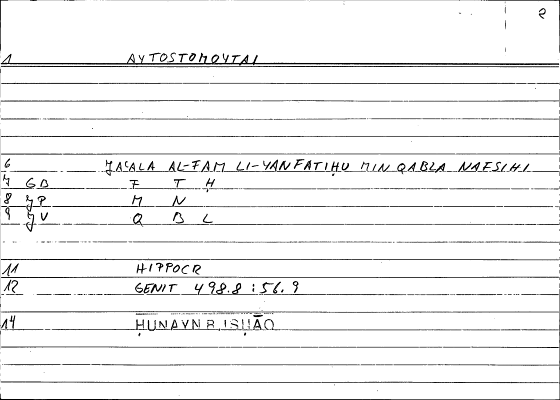 2
1 AYTOSTOMOYTAI
6 ǦAʿALA AL-FAM LI-YANFATIḤU MIN QABLA NAFSIHI
7 GD F T Ḥ
8 ǦP M N
9 ǦV Q B L
11 HIPPOCR
12 GENIT 498.8:56.9
14 ḤUNAYN B. ISḤĀQ